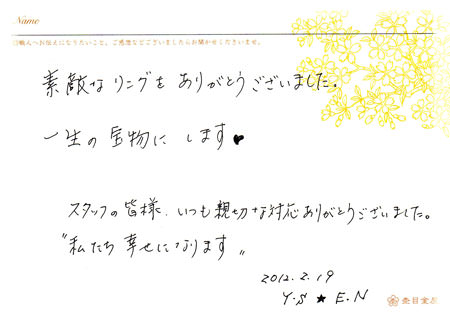 Name
□職人へお伝えになりたいこと、ご感想などございましたらお聞かせくださいませ。
素敵なリングを ありがとうございました。
一生の宝物に します♥
スタッフの皆様、いつも親切な対応ありがとうございました。
〝私たち 幸せになります〟
2012.2.19
Y.S ★ E.N
杢目金屋